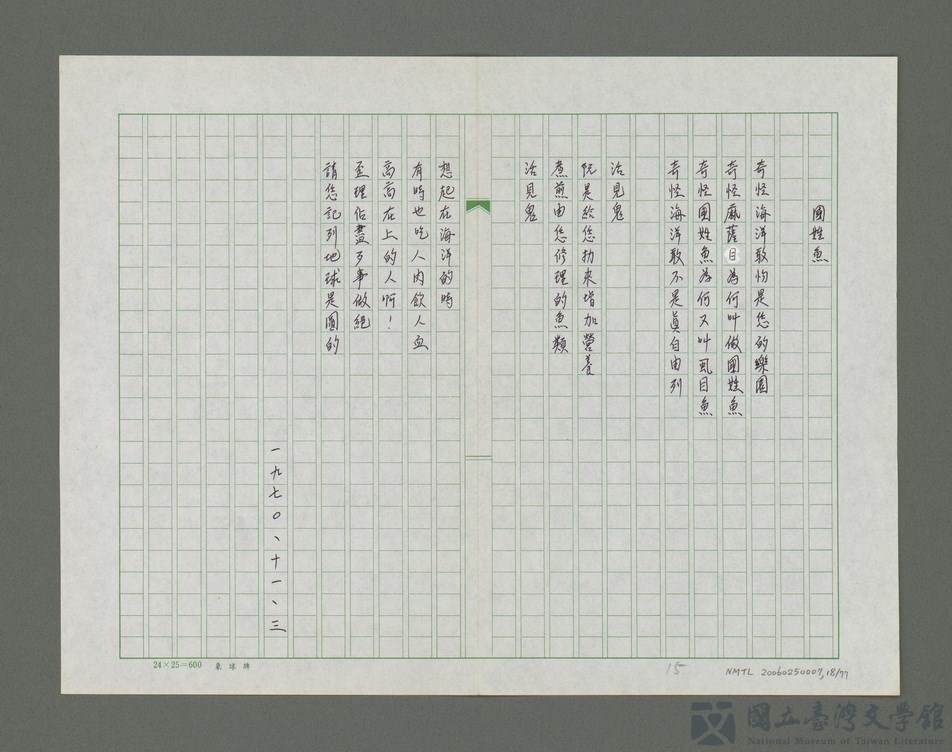 國姓魚
奇怪海洋敢怕是您的樂園
奇怪麻薩目為何叫做國姓魚
奇怪國姓魚為何又叫虱目魚
奇怪海洋敢不是眞自由列
活見鬼
阮是給您抲來增加營養
煮煎由您修理的魚類
活見鬼
想起在海洋的時
有時也吃人肉飲人血
高高在上的人啊！
歪理佔盡歹事做絕
請您記列地球是圓的
一九七〇、十一、三
24×25=600 東球牌
15
NMTL 20060250007,18/77
國立臺灣文學館
National Museum of Taiwan Literature